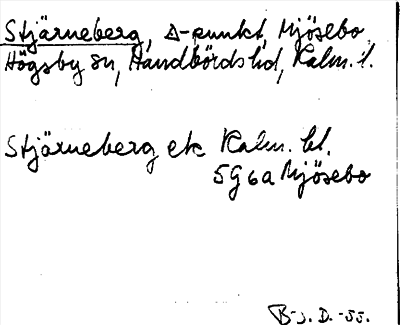 Stjärneberg, △-punkt, Mjösebo,
Högsby sn, Handbörds hd, Kalm. l.
Stjärneberg ek Kalm. bl.
5G6a Mjösebo
B-s. D. -55.